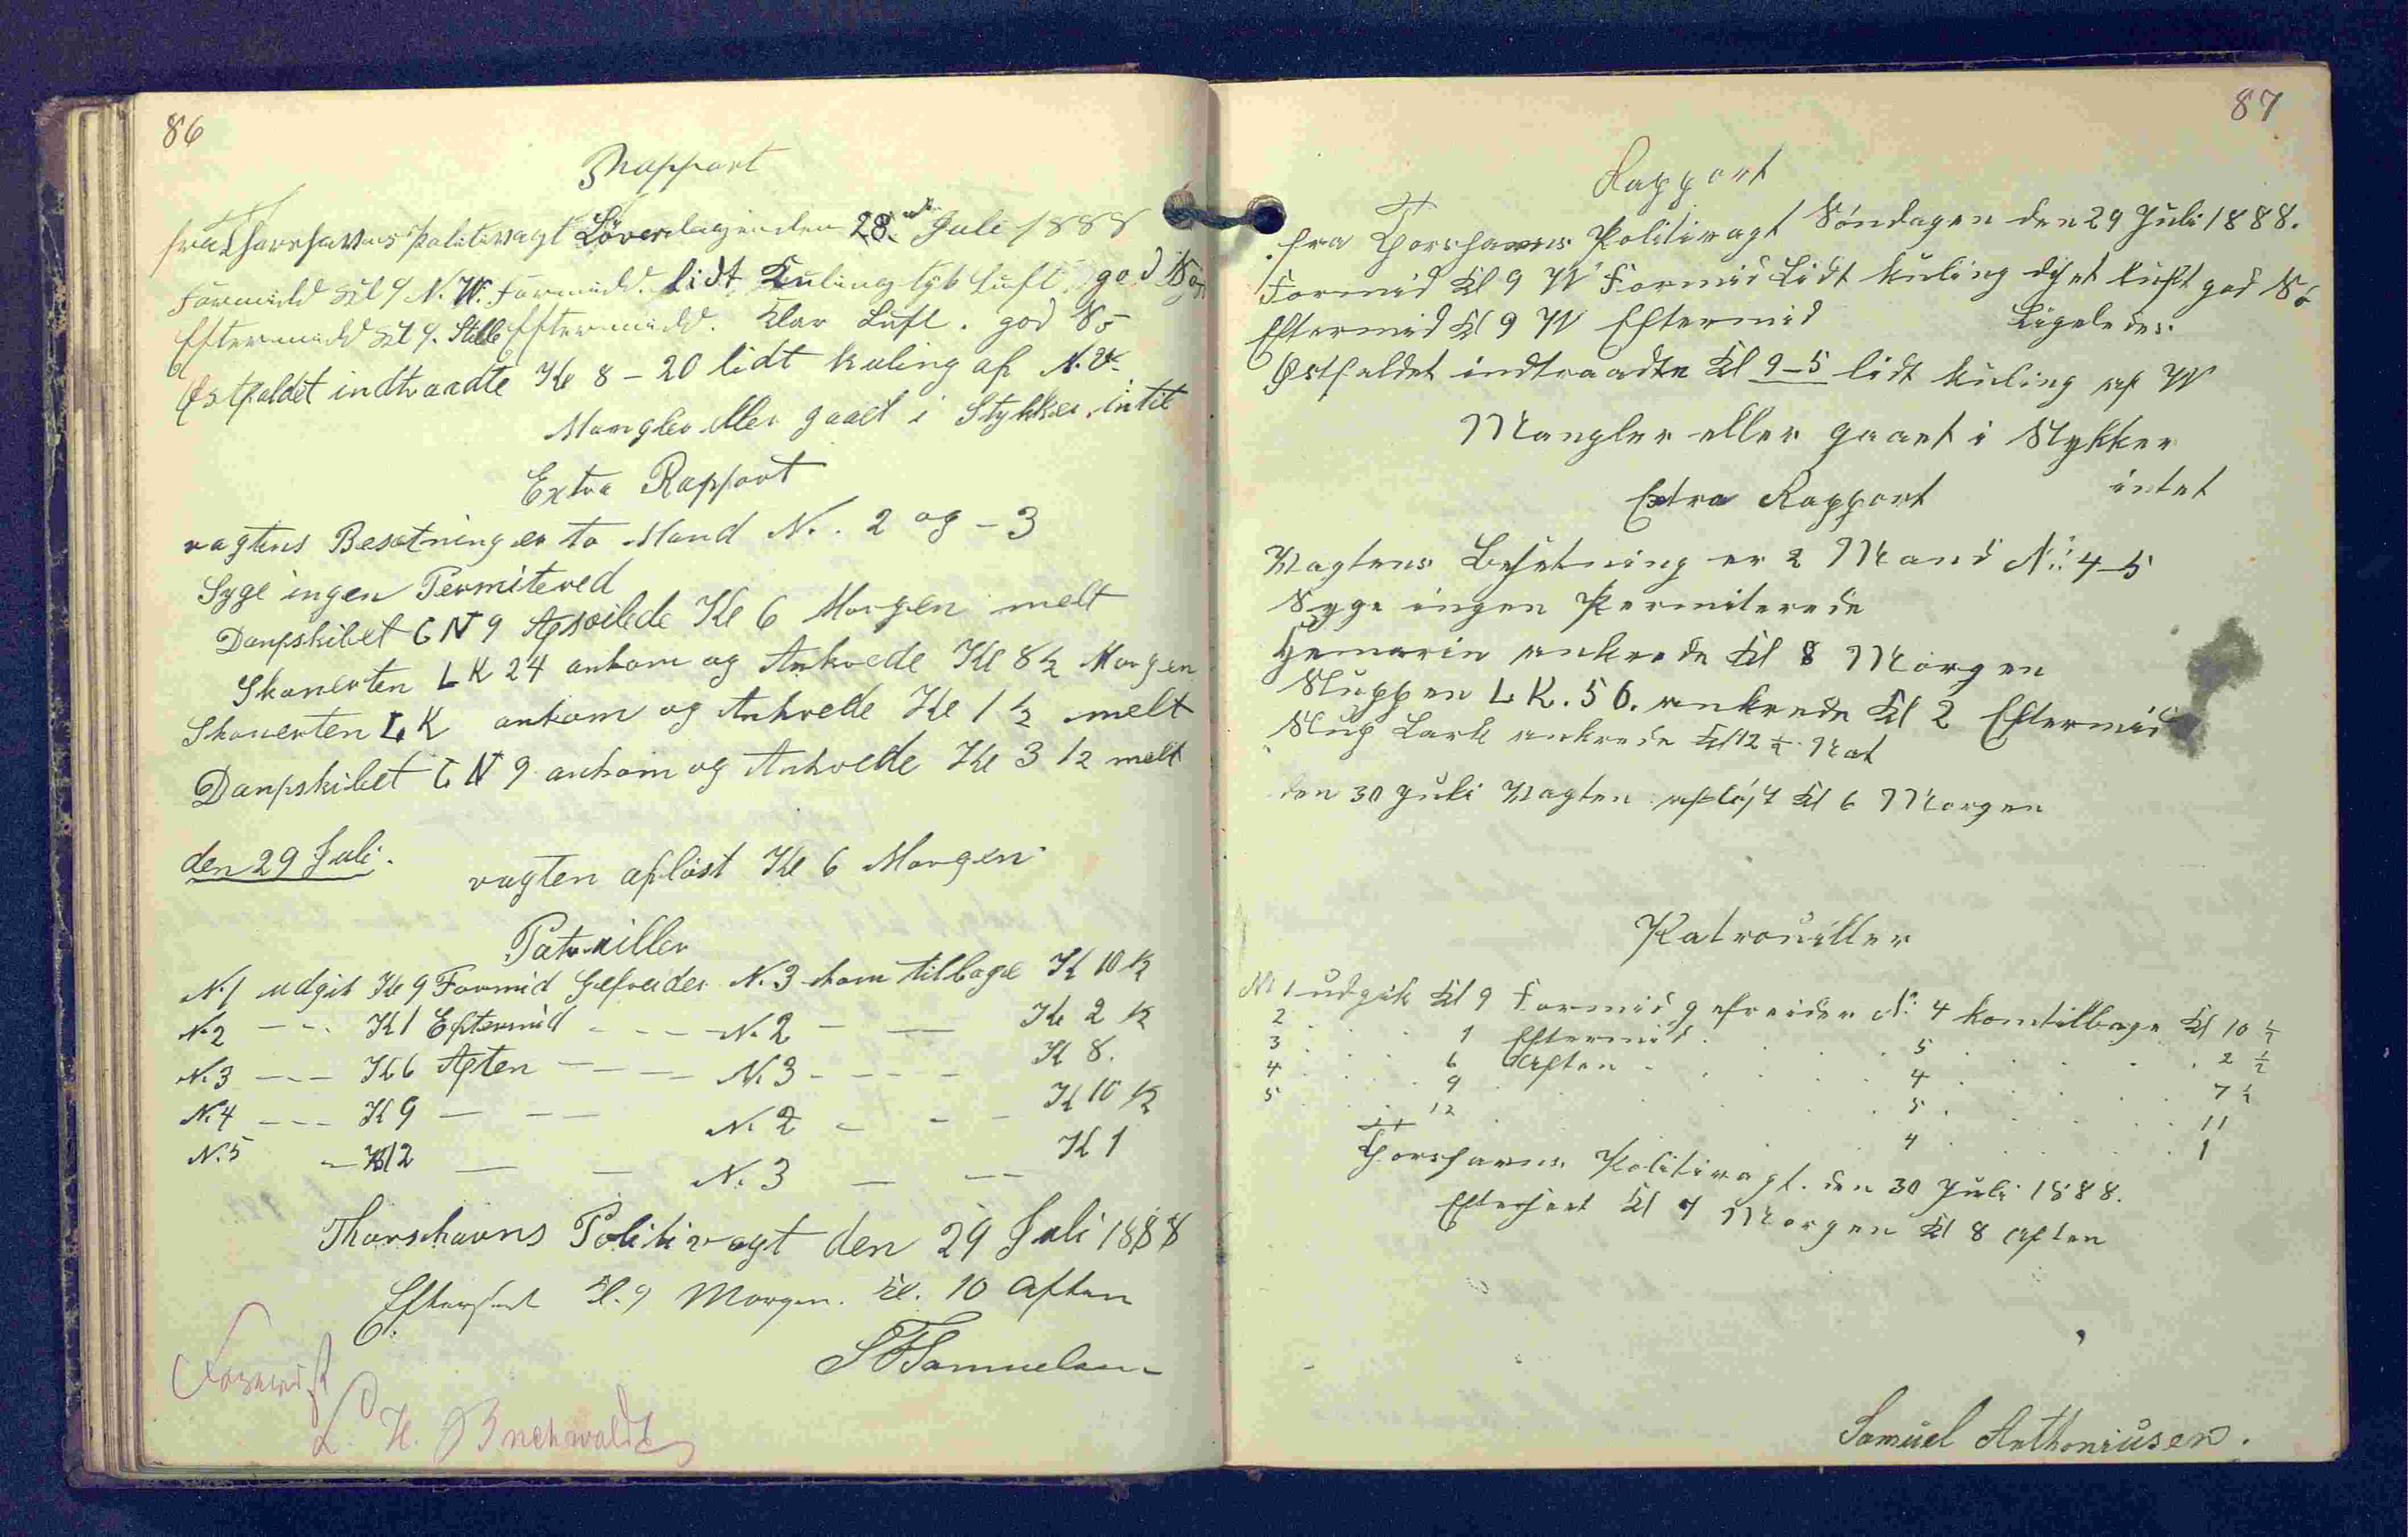 86
Rapport
fra Thorshavns Politivagt Löverdagen den 28. Juli 1888
Formidd Kl 9 N.W. Formidd. lidt Kuling tyk Luft god Sö
Eftermidd Kl 9. Stille Eftermidd. Klar Luft. god Sö
Østfaldet indtraadte Kl 8-20 lidt kuling af N.V.
Mangler eller gaaet i Stykker intet
Extra Rapport
vagtens Besætning er to Mand N. 2 og - 3
Syge ingen Permitered
Danpskibet GN9 Afseilede Kl 6 Morgen melt
Skonerten LK 24 ankom og Ankrede Kl 8½ Morgen
Skonerten LK ankom og Ankrede Kl 1½ melt
Danpskibet GN9 ankom og Ankrede Kl 3½ melt
den 29 Juli. vagten aflöst Kl 6 Morgen
Patruiller
N.1 udgik Kl 9 Formid Gefreider N.3 kom tilbage Kl 10½
N.2 - - - Kl 1 Eftermid - - - - N.2 - - Kl 2½
N.3 - - - Kl 6 Aften - - - N.3 - - - - Kl 8.
N.4 - - - Kl 9 - - - N.2 - - - Kl 10½
N.5 - Kl 12 - - N.3 - - - Kl 1
Thorshavns Politivagt den 29 Juli 1888
Efterseet Kl. 9 Morgen. Kl. 10 Aften
Samuelsen
L. H. Buchwaldt
87
Rapport
fra Thorshavns Politivagt Søndagen den 29 Juli 1888.
Formid Kl 9 W Formid Lidt Kuling luft god Sö
Eftermid Kl 9 W Eftermid Ligeledes.
Østfaldet indtraadte Kl 9-5 lidt Kuling af W
Mangler eller gaaet i Stykker
intet
Extra Rapport
Vagtens Besetning er 2 Mand N: 4-5
Syge ingen Permiterede
ankrede Kl 8 Morgen
Sluppen LK. 56. ankrede Kl 2 Eftermid
Slup Lark ankrede Kl 12 ½ Nat
den 30 Juli Vagten afløst Kl 6 Morgen
Patrouiller
N: 1 udgik Kl 9 Formid gefreider N: 4 kom tilbage Kl 10 ½
2 . . . 1 Eftermid . . . 5 . . . 2 ½
3 . . . 6 Aften . . . 4 . . . 7 ½
4 . . . 9 . . . 5 . . . 11
5 . . . 12 . . . 4 . . . 1
Thorshavns Politivagt. den 30 Juli 1888.
Efterseet Kl 9 Morgen Kl 8 Aften
Samuel Anthoniusen.